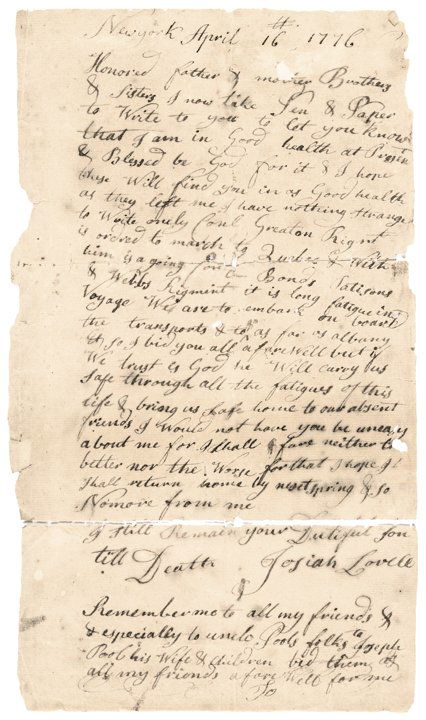 Newyork April 16th 1776
Honored father & mother Brothers
& Sisters I now take Pen & Paper
to Write to you to let you know
that I am in Good health at Presen
& Blessed be God for it & I hope
these Will find you in as Good health
as they left me I have nothing strange
to Write onely Conl Greaton Rigmt
is ordred to march to Quebec & With
him is a going Conl Bonds Patisons
& Webbs Rigment it is long fatigueing
Voyage We are to embark on board
the transports & to as far as albany
& so I bid you all a fare Well but if
We trust is God he Will carry us
safe through all the fatigues of this
life & bring us safe home to our absent
friends I Would not have you be uneasy
about me for I shall fare neither the
better nor the Worse for that I hope I
shall return home by next spring & so
Nomore from me
I still Remain your Dutiful son
till Death Josiah Lovell
Remember me to all my friends &
& especially to uncle Pools folks to Joseph
Pool his Wife & Children bid them &
all my friends a fare Well for me
So